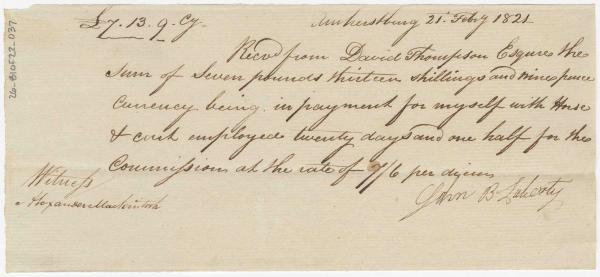 £7. 13. 9 Cy
Amherstburg 21st Feby 1821
Recd from David Thompson Esquire the
Sum of Seven pounds thirteen shillings and nine pence
Currency being in payment for myself with Horse
& cart employed twenty days and one half for the
Commission at the rate of 7/6 per diem
John B Laberty
Witness
Alexander Mackintosh
26-810522-037